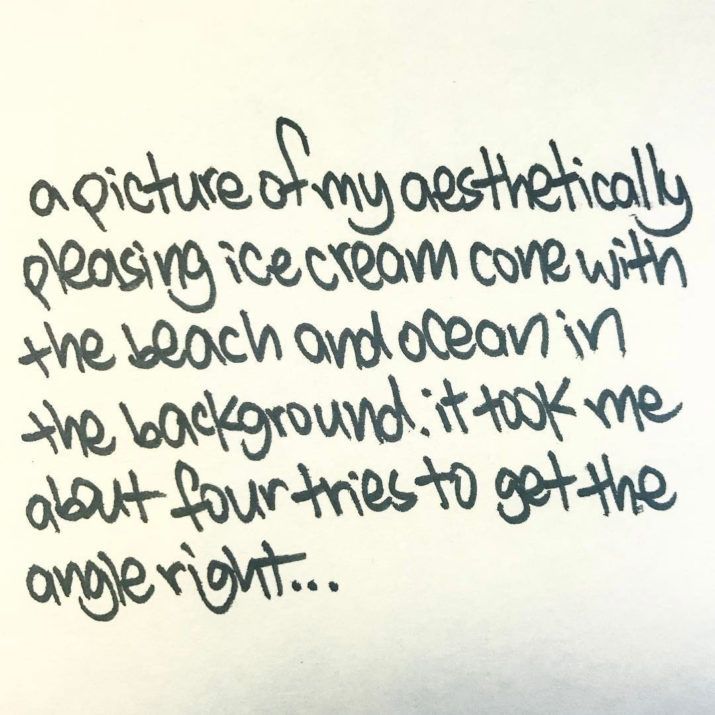 a picture of my aesthetically
pleasing ice cream cone with
the beach and ocean in
the background. it took me
about four tries to get the
angle right...